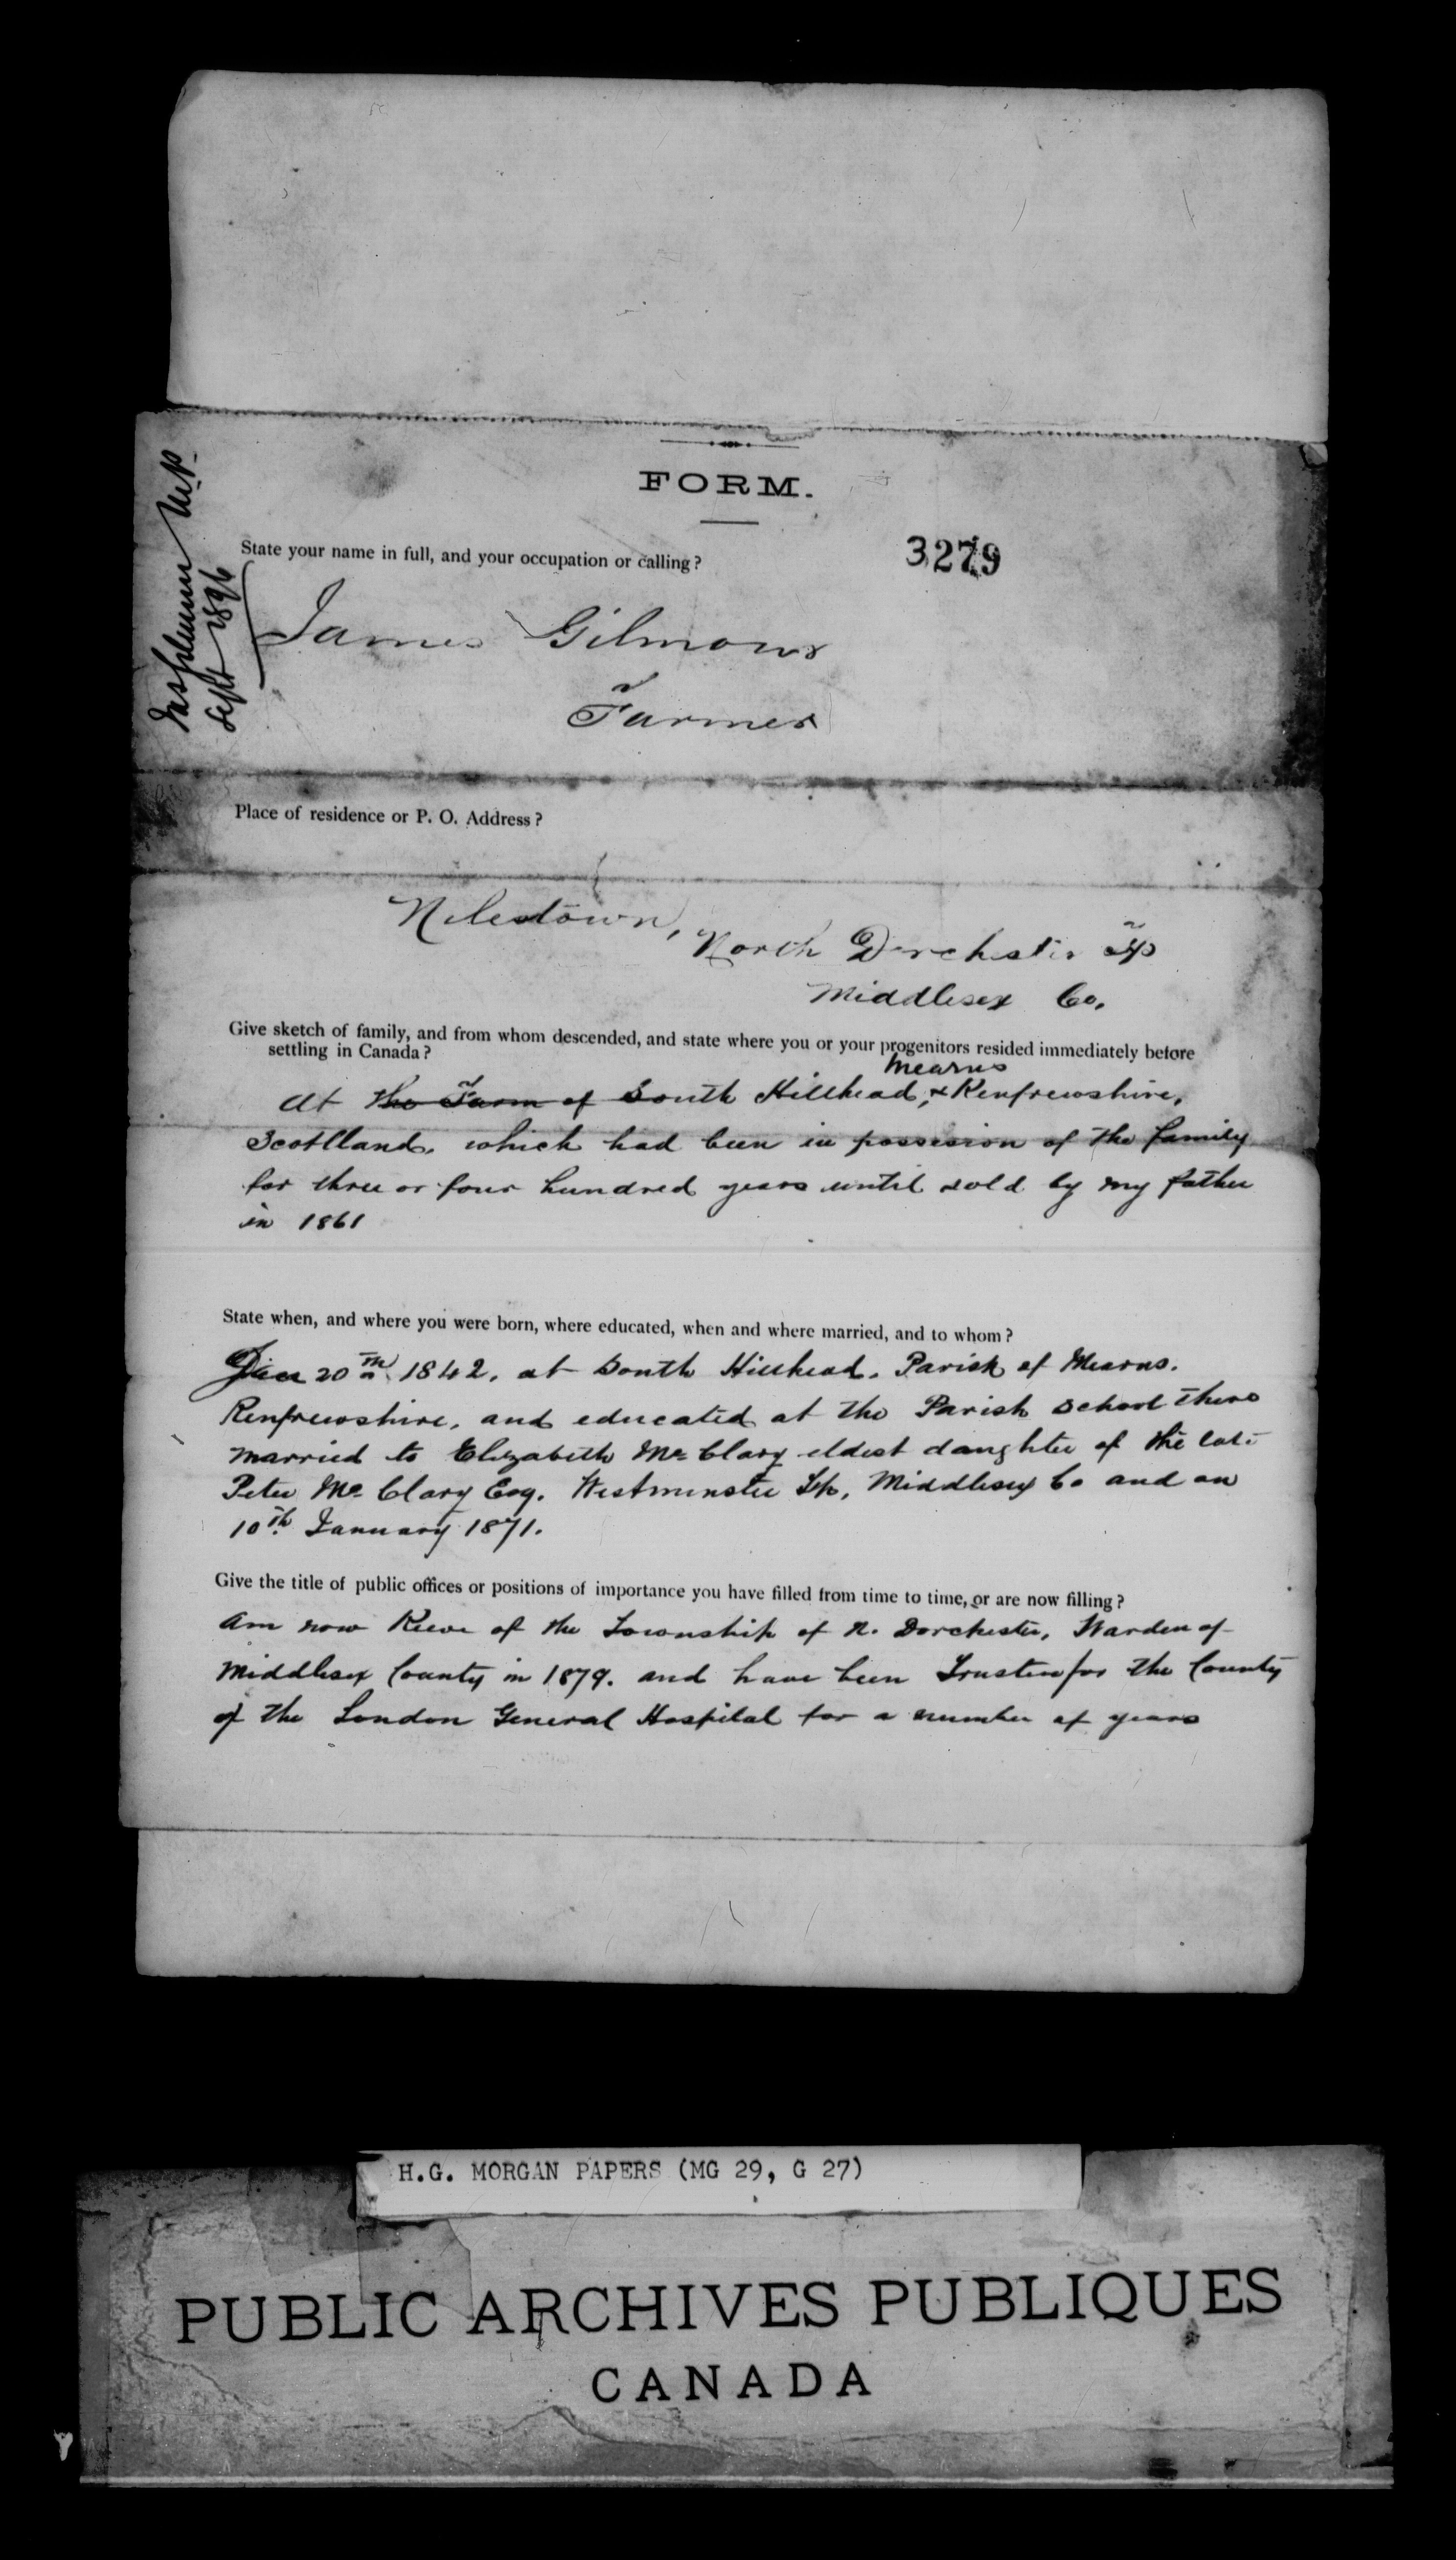 FORM.
3279
State your name in full, and your occupation or calling?
Sept 1896
James Gilmour
Farmer
Place of residence or P. O. Address?
Nilestown,
North Dorchester Tp
Middlesex Co.
Give sketch of family, and from whom descended, and state where you or your progenitors resided immediately before
settling in Canada?
Mearns
At the Farm of South Hillhead, Renfrewshire,
Scotlland. which had been in possession of the family
for three or four hundred years until sold by my father
in 1861
State when, and where you were born, where educated, when and where married, and to whom?
20th 1842. at South Hillhead. Parish of Mearns.
Renfrewshire. and educated at the Parish school there
married to Elizabeth Mc Clary eldest daughter of the late
Peter Mc Clary Esq. Westminster Tp, Middlesex Co and on
10th January 1871.
Give the title of public offices or positions of importance you have filled from time to time, or are now filling?
Am now Reeve of the Township of N. Dorchester, Warden of
Middlesex County in 1879. and have been Trustee for the County
of the London General Hospital for a number of years
H.G. MORGAN PAPERS (MG 29, G 27)
PUBLIC ARCHIVES PUBLIQUES
CANADA